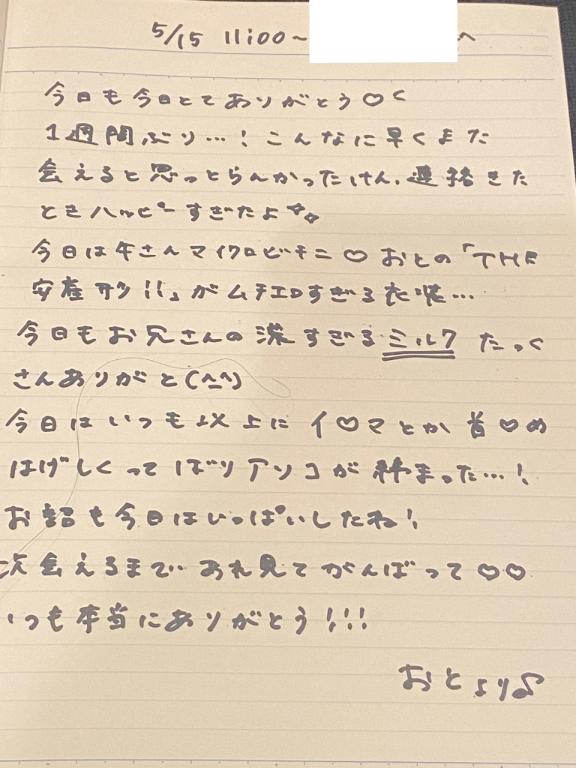 5/15 11:00～ へ
今日も今日とてありがとう♡く
1週間ぶり…！こんなに早くまた
会えると思っとらんかったけん、連絡きた
ときハッピーすぎたよ✧✧
今日は牛さんマイクロビキニ♡おとの「THE
安産型!!」がムチエロすぎる衣装…
今日もお兄さんの濃すぎるミルクたっく
さんありがと(^_^)
今日はいつも以上にイ♡マとか首♡め
はげしくってばりアソコが締まった…！
お話も今日はいっぱいしたね！
次会えるまであれ見てがんばって♡♡
いつも本当にありがとう!!!
おとより♪